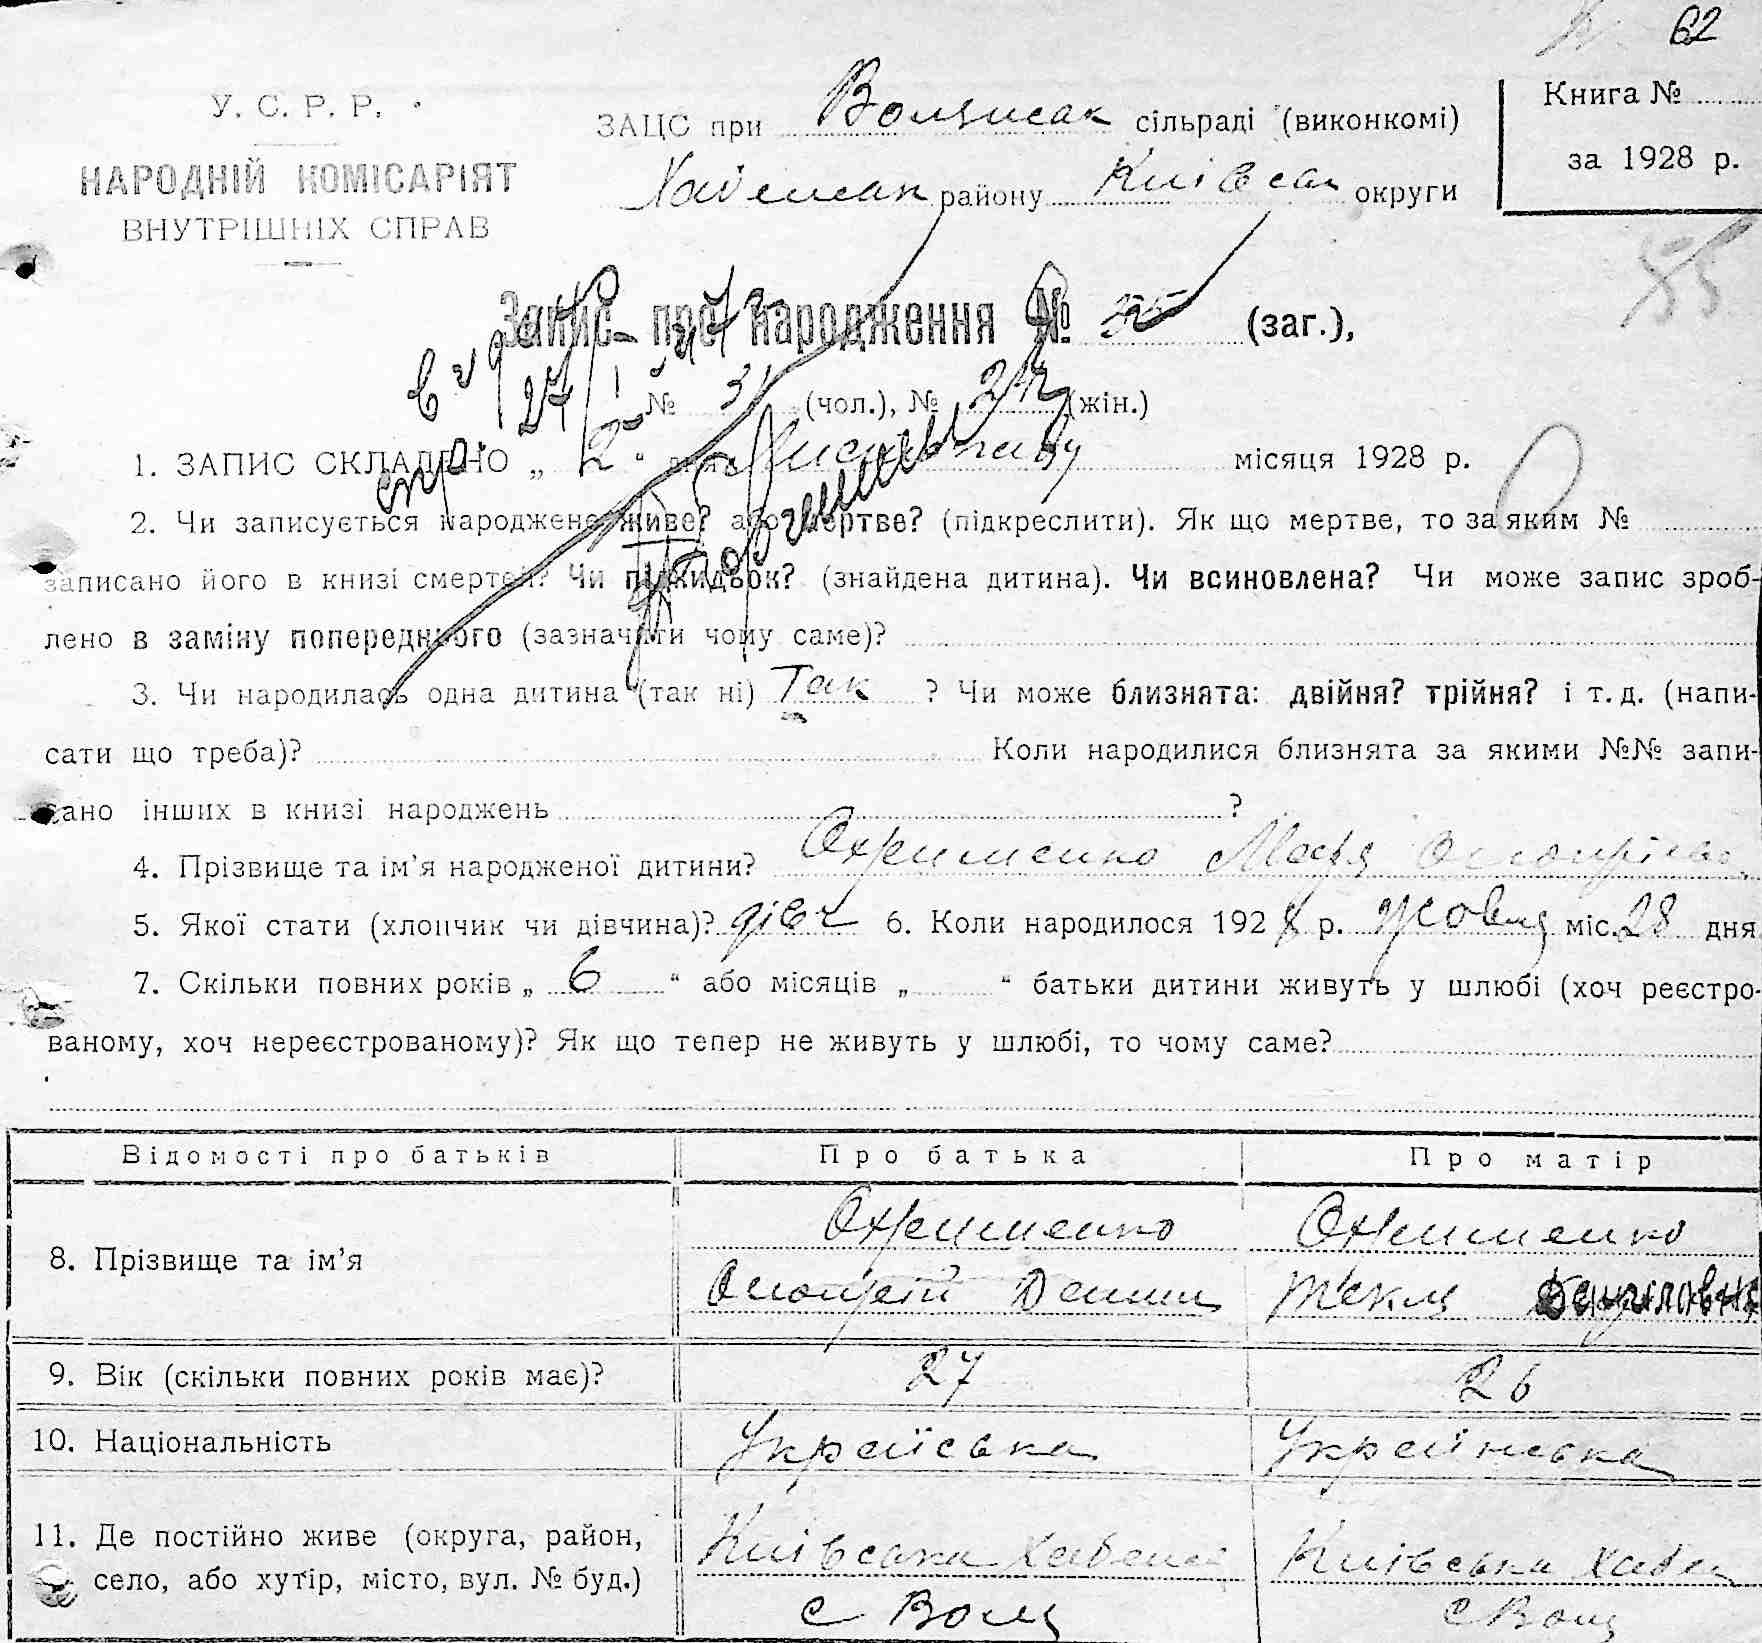 62
У. С. Р. Р.
НАРОДНІЙ КОМІСАРІЯТ
ВНУТРІШНІХ СПРАВ
ЗАЦС при сільраді (виконкомі)
району Київськ округи
Книга №
за 1928 р.
55
Запис про народження № (заг.),
№ 31 (чол.), № (жін.)
1. ЗАПИС СКЛАДЕНО „ 2 “ дня Листопаду місяця 1928 р.
2. Чи записується народжене живе? або мертве? (підкреслити). Як що мертве, то за яким №
записано його в книзі смертей? Чи підкидьок? (знайдена дитина). Чи всиновлена? Чи може запис зроб-
лено в заміну попереднього (зазначити чому саме)?
3. Чи народилась одна дитина (так ні) Так ? Чи може близнята: двійня? трійня? і т. д. (напи-
сати що треба)? Коли народилися близнята за якими №№ запи-
сано інших в книзі народжень ?
4. Прізвище та ім’я народженої дитини? Охрименко Марія
5. Якої стати (хлопчик чи дівчина)? дівч 6. Коли народилося 1928 р. жовтя міс. 28 дня
7. Скільки повних років „ 6 “ або місяців „ “ батьки дитини живуть у шлюбі (хоч реєстро-
ваному, хоч нереєстрованому)? Як що тепер не живуть у шлюбі, то чому саме?
Відомості про батьків Про батька Про матір
8. Прізвище та ім’я Охрименко Охрименко
Текля Данииловна
9. Вік (скільки повних років має)? 27 26
10. Національність Украіська Украінська
11. Де постійно живе (округа, район, Київська Київська
село, або хутір, місто, вул. № буд.)
с с